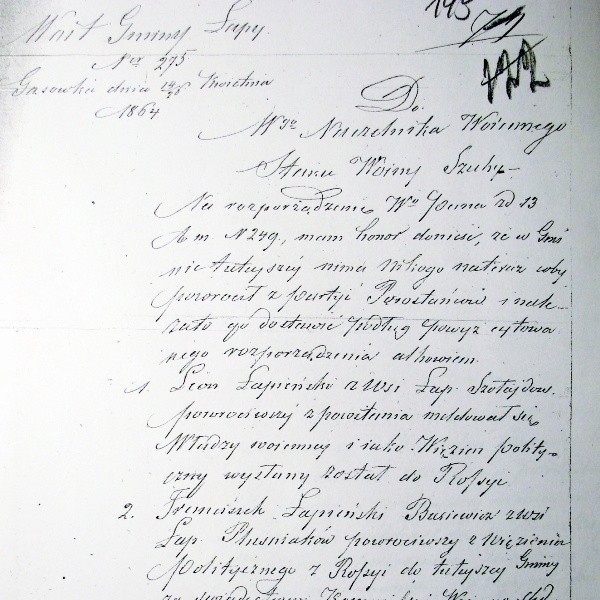 145
Woit Gminy Łapy.
Ner 275
Gąsówka dnia 14/26 Kwietnia
1864
Do
Wgo Naczelnika Woiennego
Stanu Woiny
Na rozporządzenie Wo Pana z d 13
b m. N 249, mam honor donieść, że w Gmi
nie tutejszéj nima nikogo nateraz coby
powrócił z partyi Powstańców i nale
żało go dostawić podług powyż cytowa
nego rozporządzenia albowiem.
1. Leon Łapieński z wsi Łap. Szołajdów
powrociwszÿ z powstania meldował się
Władzy woienney i iako Więzień polity-
czny wysłany został do Rossyi
2. Franciszek Łapieński Basiewicz z wsi
Łap. Pluśniaków powrociwszy z więzienia
Politycznego z Rossyi do tutejszéj Gminy
za